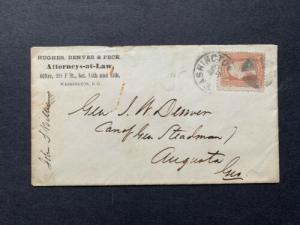 HUGHES, DENVER & PECK,
Attorneys-at-Law,
Office, F St., bet. 14th and 15th,
WASHINGTON, D. C.
WASHINGTON
Gen J. W Denver
Care of Gen Steadman
Augusta
Geo